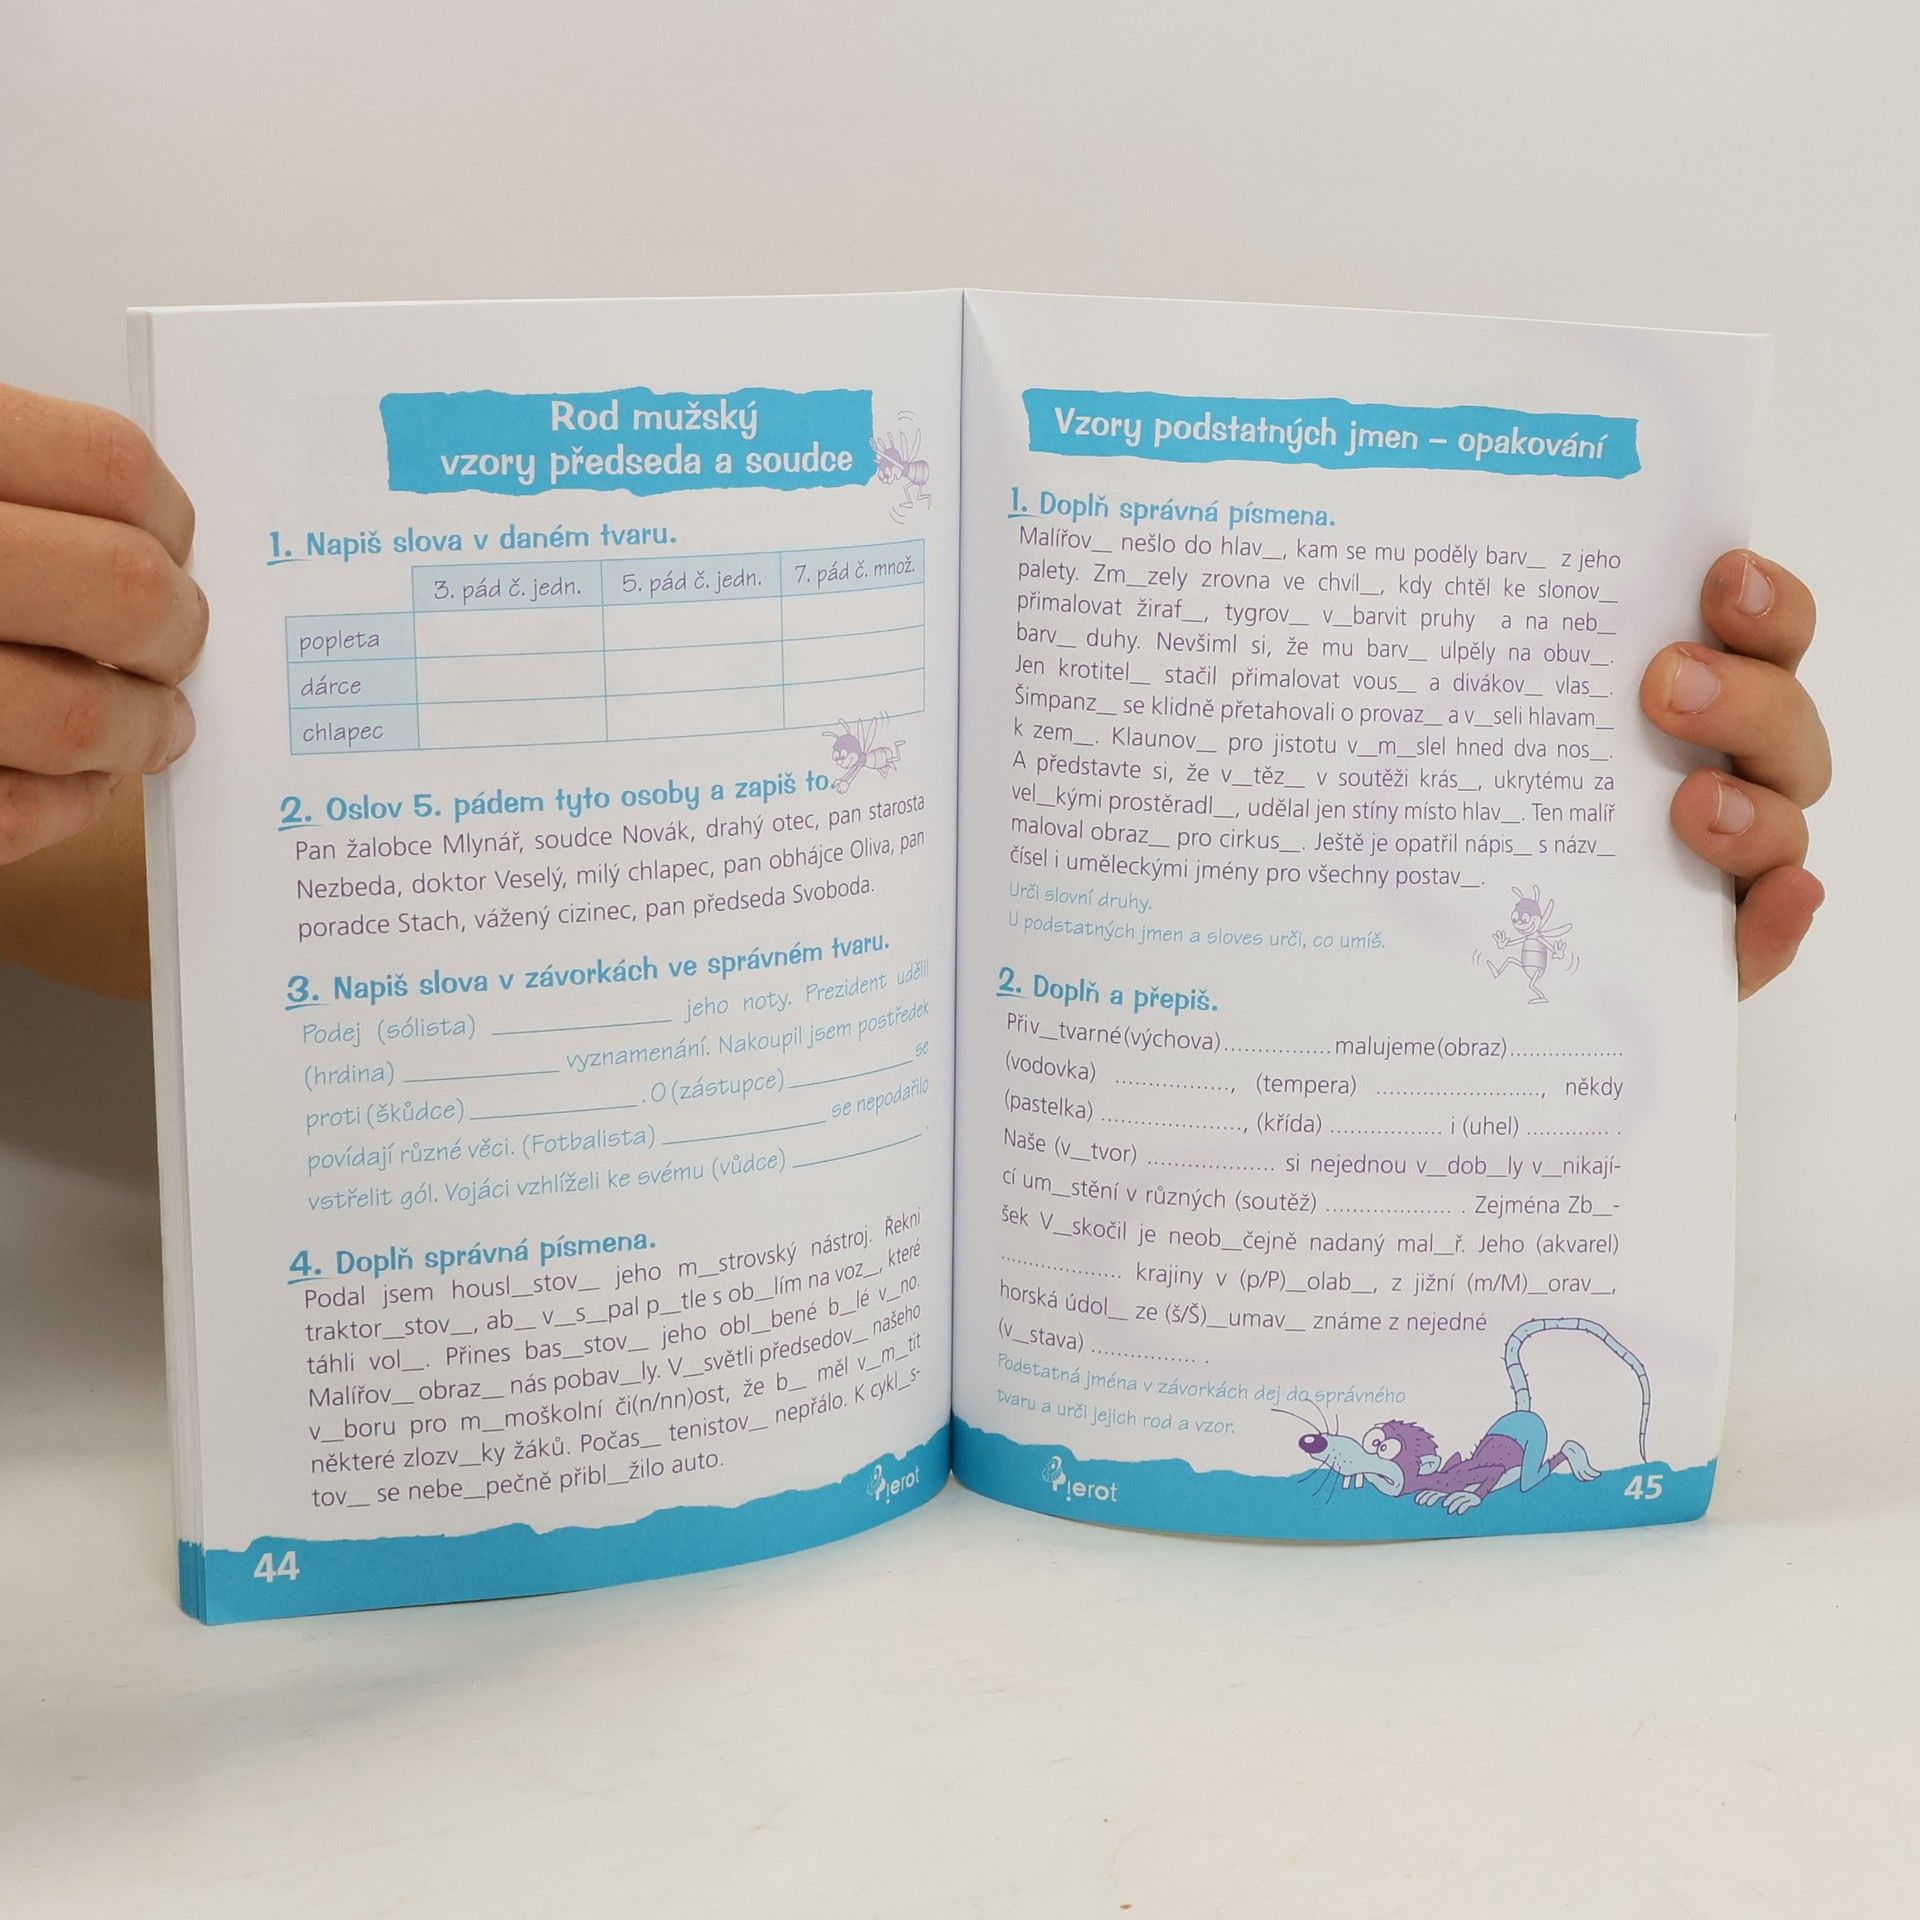 Rod mužský
vzory předseda a soudce
1. Napiš slova v daném tvaru.
3. pád č. jedn. 5. pád č. jedn. 7. pád č. množ.
popleta
dárce
chlapec
2. Oslov 5. pádem tyto osoby a zapiš to.
Pan žalobce Mlynář, soudce Novák, drahý otec, pan starosta
Nezbeda, doktor Veselý, milý chlapec, pan obhájce Oliva, pan
poradce Stach, vážený cizinec, pan předseda Svoboda.
3. Napiš slova v závorkách ve správném tvaru.
Podej (sólista) ____________ jeho noty. Prezident udělil
(hrdina) ____________ vyznamenání. Nakoupil jsem postředek
proti (škůdce) ____________. O (zástupce) ____________ se
povídají různé věci. (Fotbalista) ____________ se nepodařilo
vstřelit gól. Vojáci vzhlíželi ke svému (vůdce) ____________.
4. Doplň správná písmena.
Podal jsem housl__stov__ jeho m__strovský nástroj. Řekni
traktor__stov__, ab__ v__s__pal p__tle s ob__lím na voz__, které
táhli vol__. Přines bas__stov__ jeho obl__bené b__lé v__no.
Malířov__ obraz__ nás pobav__ly. V__světli předsedov__ našeho
v__boru pro m__moškolní či(n/nn)ost, že b__ měl v__m__tit
některé zlozv__ky žáků. Počas__ tenistov__ nepřálo. K cykl__s-
tov__ se nebe__pečně přibl__žilo auto.
Pierot
44
Vzory podstatných jmen – opakování
1. Doplň správná písmena.
Malířov__ nešlo do hlav__, kam se mu poděly barv__ z jeho
palety. Zm__zely zrovna ve chvíl__, kdy chtěl ke slonov__
přimalovat žiraf__, tygrov__ v__barvit pruhy a na neb__
barv__ duhy. Nevšiml si, že mu barv__ ulpěly na obuv__.
Jen krotitel__ stačil přimalovat vous__ a divákov__ vlas__.
Šimpanz__ se klidně přetahovali o provaz__ a v__seli hlavam__
k zem__. Klaunov__ pro jistotu v__m__slel hned dva nos__.
A představte si, že v__těz__ v soutěži krás__, ukrytému za
vel__kými prostěradl__, udělal jen stíny místo hlav__. Ten malíř
maloval obraz__ pro cirkus__. Ještě je opatřil nápis__ s názv__
čísel i uměleckými jmény pro všechny postav__.
Urči slovní druhy.
U podstatných jmen a sloves urči, co umíš.
2. Doplň a přepiš.
Přiv__tvarné (výchova)................malujeme (obraz).................
(vodovka) ................., (tempera) ........................, někdy
(pastelka) ...................., (křída) ................ i (uhel) ............ .
Naše (v__tvor) .................. si nejednou v__dob__ly v__nikají-
cí um__stění v různých (soutěž) .................. . Zejména Zb__-
šek V__skočil je neob__čejně nadaný mal__ř. Jeho (akvarel)
................. krajiny v (p/P)__olab__, z jižní (m/M)__orav__,
horská údol__ ze (š/Š)__umav__ známe z nejedné
(v__stava) ............... .
Podstatná jména v závorkách dej do správného
tvaru a urči jejich rod a vzor.
Pierot
45